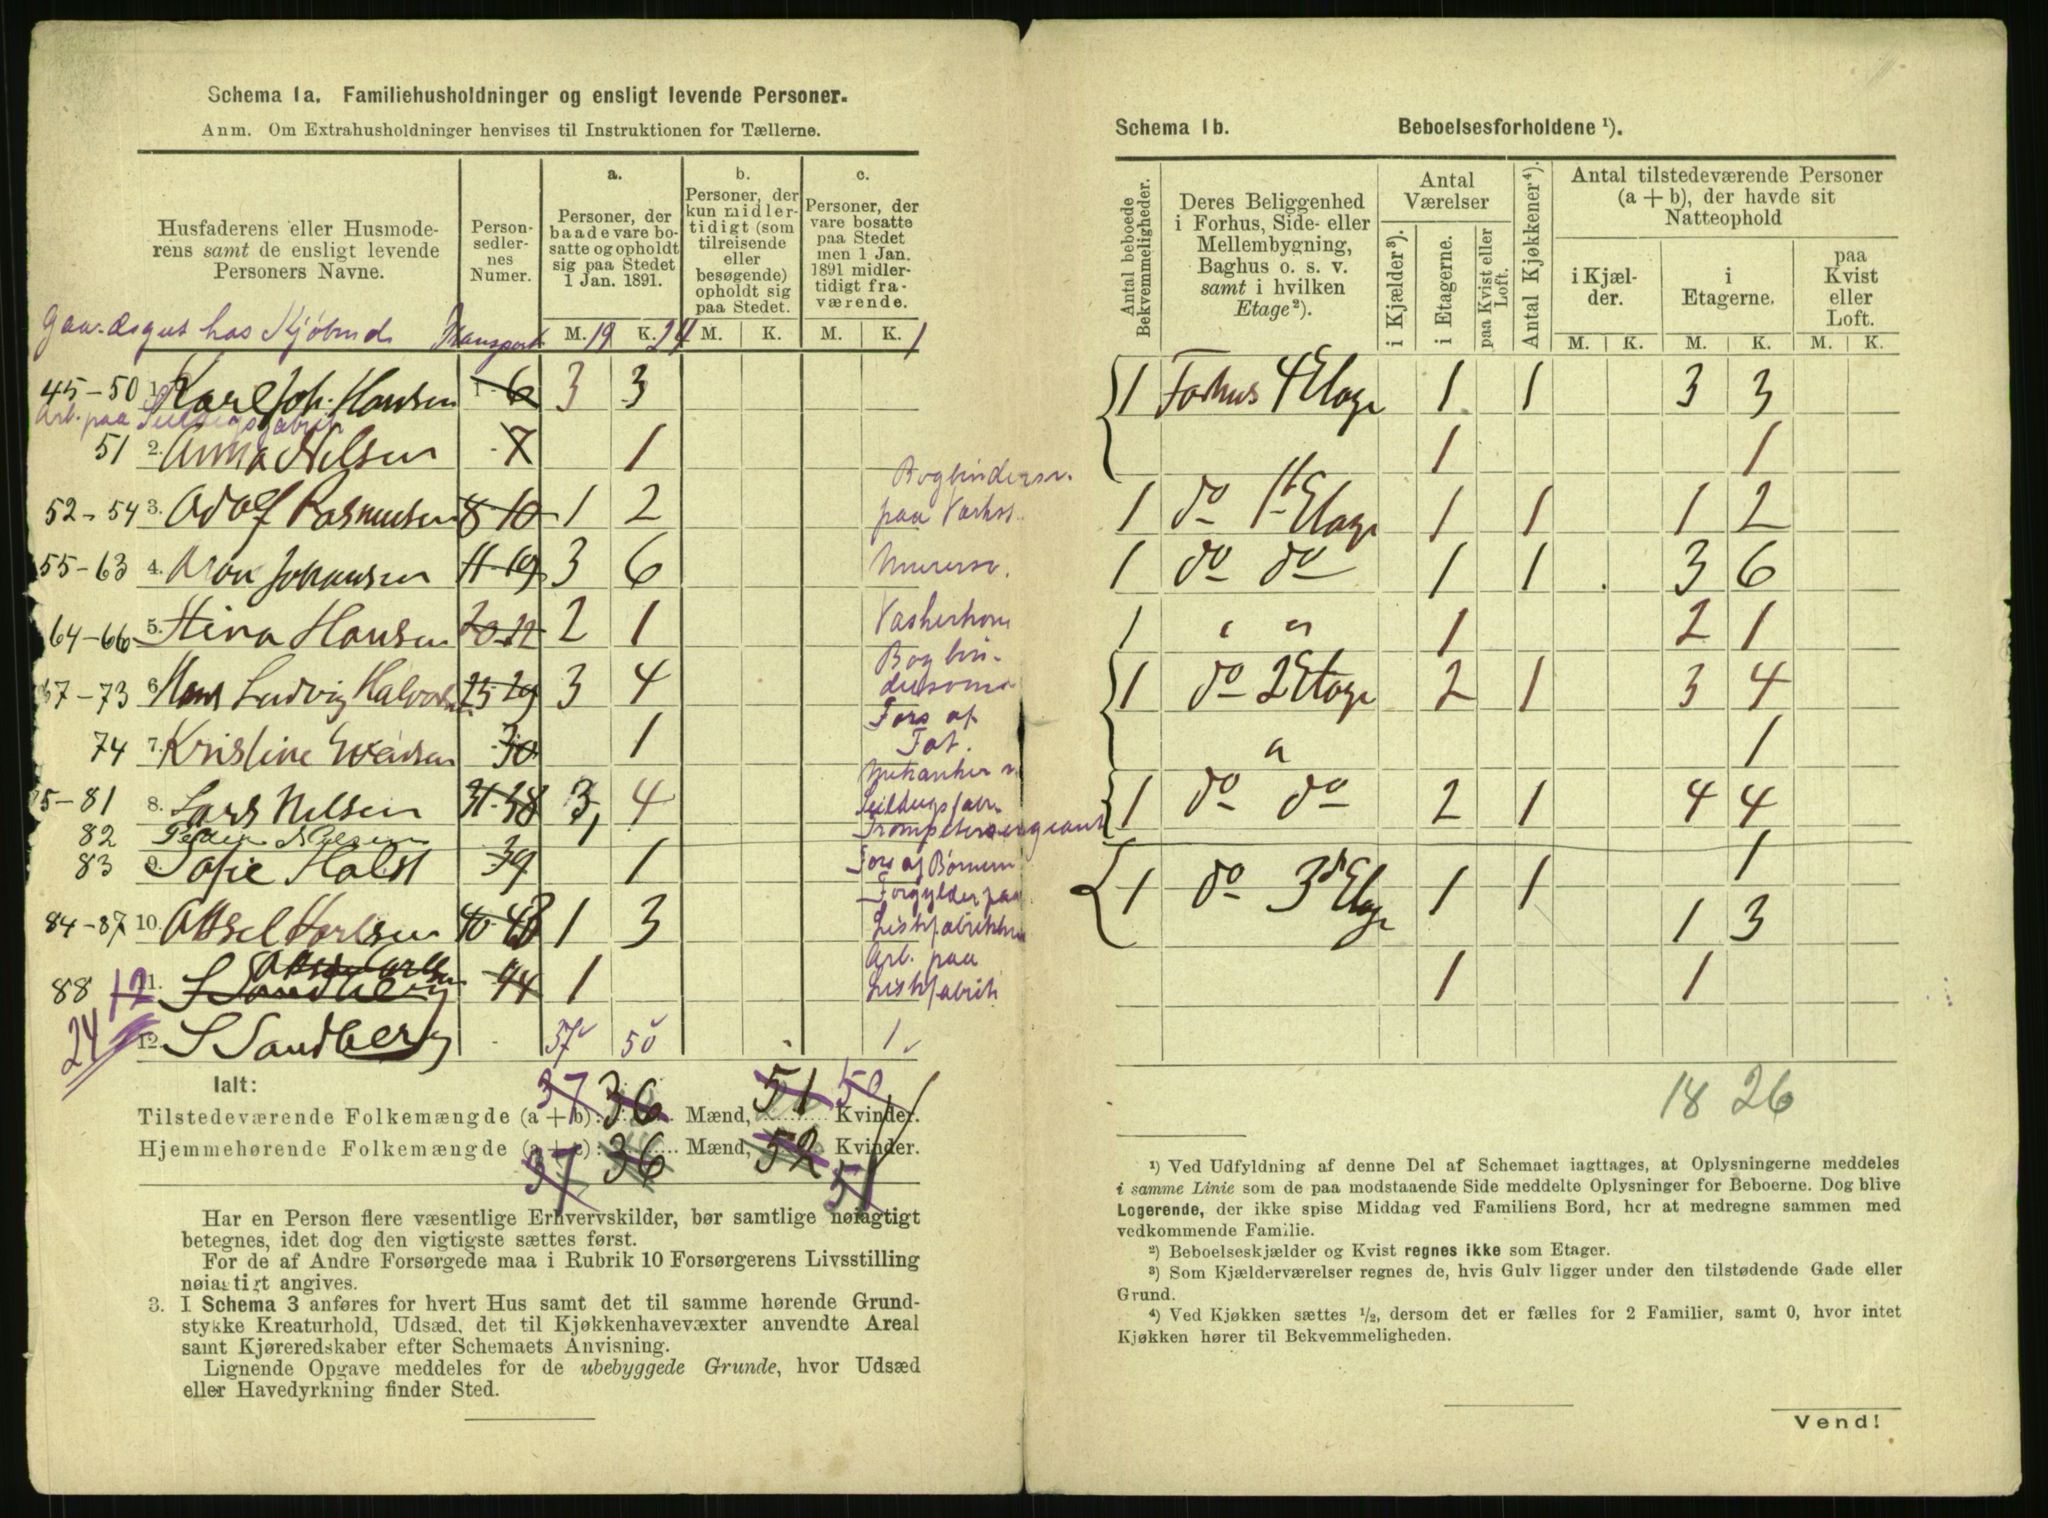 Schema 1a. Familiehusholdninger og ensligt levende Personer.
Anm. Om Extrahusholdninger henvises til Instruktionen for Tællerne.
Husfaderens eller Husmode-
rens samt de ensligt levende
Personers Navne.
Person-
sedler-
nes
Numer.
a.
Personer, der
baade vare bo-
satte og opholdt
sig paa Stedet
1 Jan. 1891.
b.
Personer, der
kun midler-
tidigt (som
tilreisende
eller
besøgende)
opholdt sig
paa Stedet.
c.
Personer, der
vare bosatte
paa Stedet
men 1 Jan.
1891 midler-
tidigt fra-
værende.
Transport M. 19 K. 24 M. K. M. K. 1
45-50 1. Karl Joh. Hansen 1-6 3 3
Arb. paa Seildugsfabrik
51 2. Anna Nilsen 7 1
52-54 3. Adolf Rasmusen 8-10 1 2 Bogbindersv.
paa
55-63 4. Johansen 11-19 3 6 Murersv.
64-66 5. Stina Hansen 20-22 2 1
67-73 6. Hans Ludvig 23-29 3 4 Bogbin-
74 7. Kristine 30 1 Fors af
Fat.
75-81 8. Lars Nilsen 31-38 3 4
82
83 9. Sofie Holst 39 1 Fors af Børnene
84-87 10. Aksel Karlsen 40-43 1 3 Forgylder paa
88 12 11. S Sandberg 44 1 Arb. paa
Listefabrik
24 12. S Sandberg 37 50 1
Ialt: 37 36 51 50
Tilstedeværende Folkemængde (a + b): Mænd, Kvinder.
Hjemmehørende Folkemængde (a + c): 36 Mænd, 52 Kvinder.
37 51
Har en Person flere væsentlige Erhvervskilder, bør samtlige nøiagtigt
betegnes, idet dog den vigtigste sættes først.
For de af Andre Forsørgede maa i Rubrik 10 Forsørgerens Livsstilling
nøiagtigt angives.
3. I Schema 3 anføres for hvert Hus samt det til samme hørende Grund-
stykke Kreaturhold, Udsæd, det til Kjøkkenhavevæxter anvendte Areal
samt Kjøreredskaber efter Schemaets Anvisning.
Lignende Opgave meddeles for de ubebyggede Grunde, hvor Udsæd
eller Havedyrkning finder Sted.
Schema 1b. Beboelsesforholdene ¹).
Antal beboede
Bekvemmeligheder.
Deres Beliggenhed
i Forhus, Side- eller
Mellembygning,
Baghus o. s. v.
samt i hvilken
Etage²).
Antal
Værelser
i Kjælder³).
i Etagerne.
paa Kvist eller
Loft.
Antal Kjøkkener⁴).
Antal tilstedeværende Personer
(a + b), der havde sit
Natteophold
i Kjæl-
der.
i
Etagerne.
paa
Kvist
eller
Loft.
M. K. M. K. M. K.
1 Forhus 4 Etage 1 1 3 3
1 1
1 do 1st Etage 1 1 1 2
1 do do 1 1 3 6
1 " " 1 2 1
1 do 2 Etage 2 1 3 4
" 1
1 do do 2 1 4 4
1
1 do 3d Etage 1 1
1 3
1 1
18 26
¹) Ved Udfyldning af denne Del af Schemaet iagttages, at Oplysningerne meddeles
i samme Linie som de paa modstaaende Side meddelte Oplysninger for Beboerne. Dog blive
Logerende, der ikke spise Middag ved Familiens Bord, her at medregne sammen med
vedkommende Familie.
²) Beboelseskjælder og Kvist regnes ikke som Etager.
³) Som Kjælderværelser regnes de, hvis Gulv ligger under den tilstødende Gade eller
Grund.
⁴) Ved Kjøkken sættes ½, dersom det er fælles for 2 Familier, samt 0, hvor intet
Kjøkken hører til Bekvemmeligheden.
Vend!